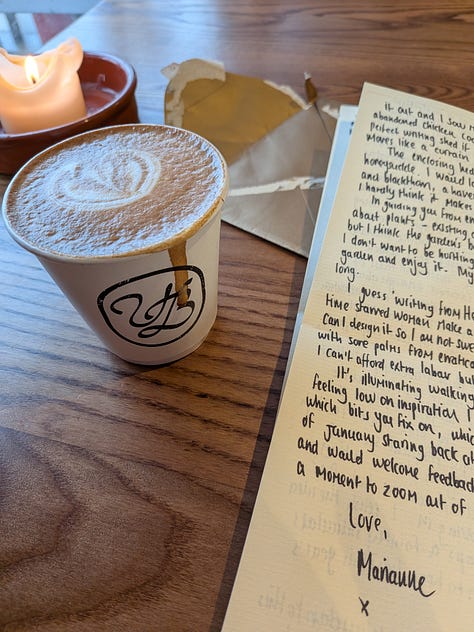 it out and I
abandoned chicken
perfect writing shed it
moves like a curtain
The enclosing
honeysuckle. I would
and blackthorn, a
I hardly think it makes
In guiding you
about plants - existing
but I think the garden's
I don't want to be
garden and enjoy it.
long.
I guess 'writing from
time starved woman make a
Can I design it so I am not
with sore palms from
I can't afford extra labour but
It's illuminating walking
feeling low on inspiration
which bits you fix on,
of January staring back at
and would welcome feedback
a moment to zoom out of
Love,
Marianne
x